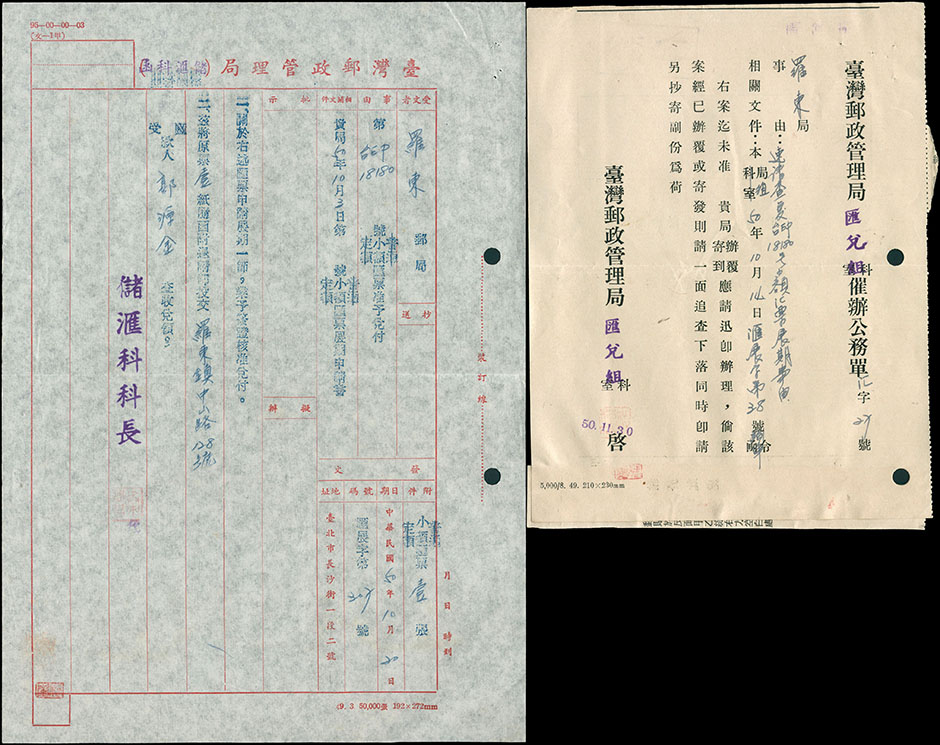 95—00—00—03
(文—1甲)
臺灣郵政管理局(儲匯科函)
受文者
羅東
郵局
抄送
事由
第
台EP
18180
號小額匯票准予兌付
定額
相關文件
貴局50年10月3日第
號小額匯票展期申請書
定額
批示
擬辦
一、關於右述匯票申請展期一節,業予簽證核准兌付。
二、茲將原票壹紙隨函附送請簽交
羅東鎮中山路128號
受款人
查收兌領。
儲滙科科長
發文
附件
小額匯票壹張
定額
日期
中華民國50年10月20日
號碼
匯展字第
號
地址
臺北市長沙街一段二號
月日時刻
裝訂線
49. 3 50,000張 192×272mm
臺灣郵政管理局
匯兌組
科室
催辦公務單
字
號
羅東局
事由:
台EP
18180
相關文件:本
局組
科室
50年10月14日匯展字第38號
令
右案迄未准 貴局
辦覆
寄到
應請迅卽辦理,倘該
案經已辦覆或寄發則請一面追查下落同時卽請
另抄寄副份爲荷
臺灣郵政管理局
匯兌組
科室
啓
50.11.30
5,000/8. 49. 210×230mm